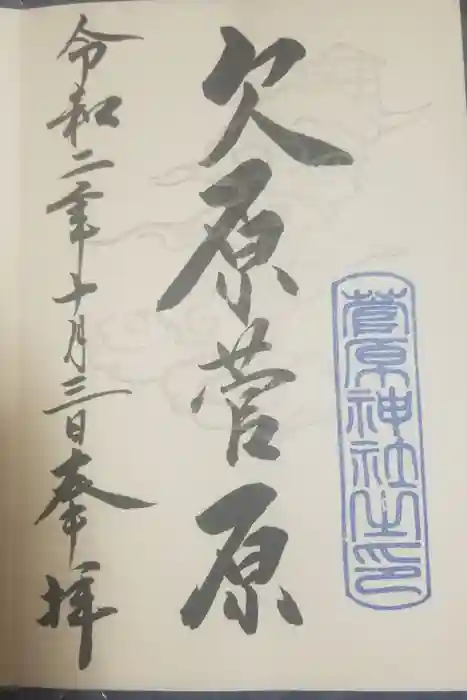 菅原神社之印
欠原菅原
令和二年十月三日奉拝